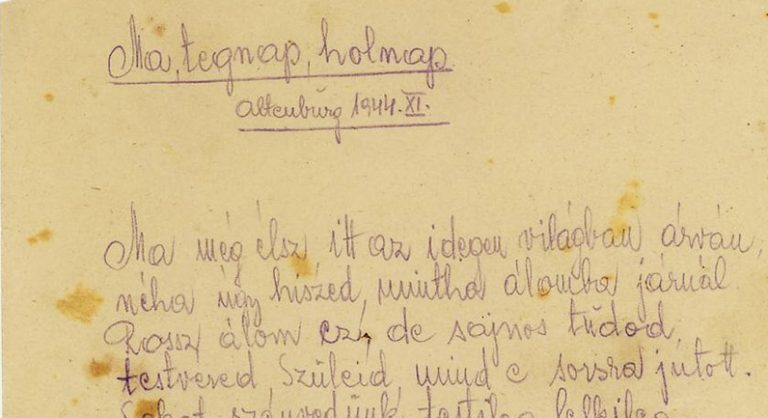 Ma, tegnap, holnap.
Altenburg 1944. XI.
Ma még élsz itt az idegen világban árván,
néha úgy hiszed, mintha álomba járnál.
Rossz álom ez, de sajnos tudod,
testvered, Szüleid, mind e sorsra jutott.
Sokat szenvedünk testileg lelkileg